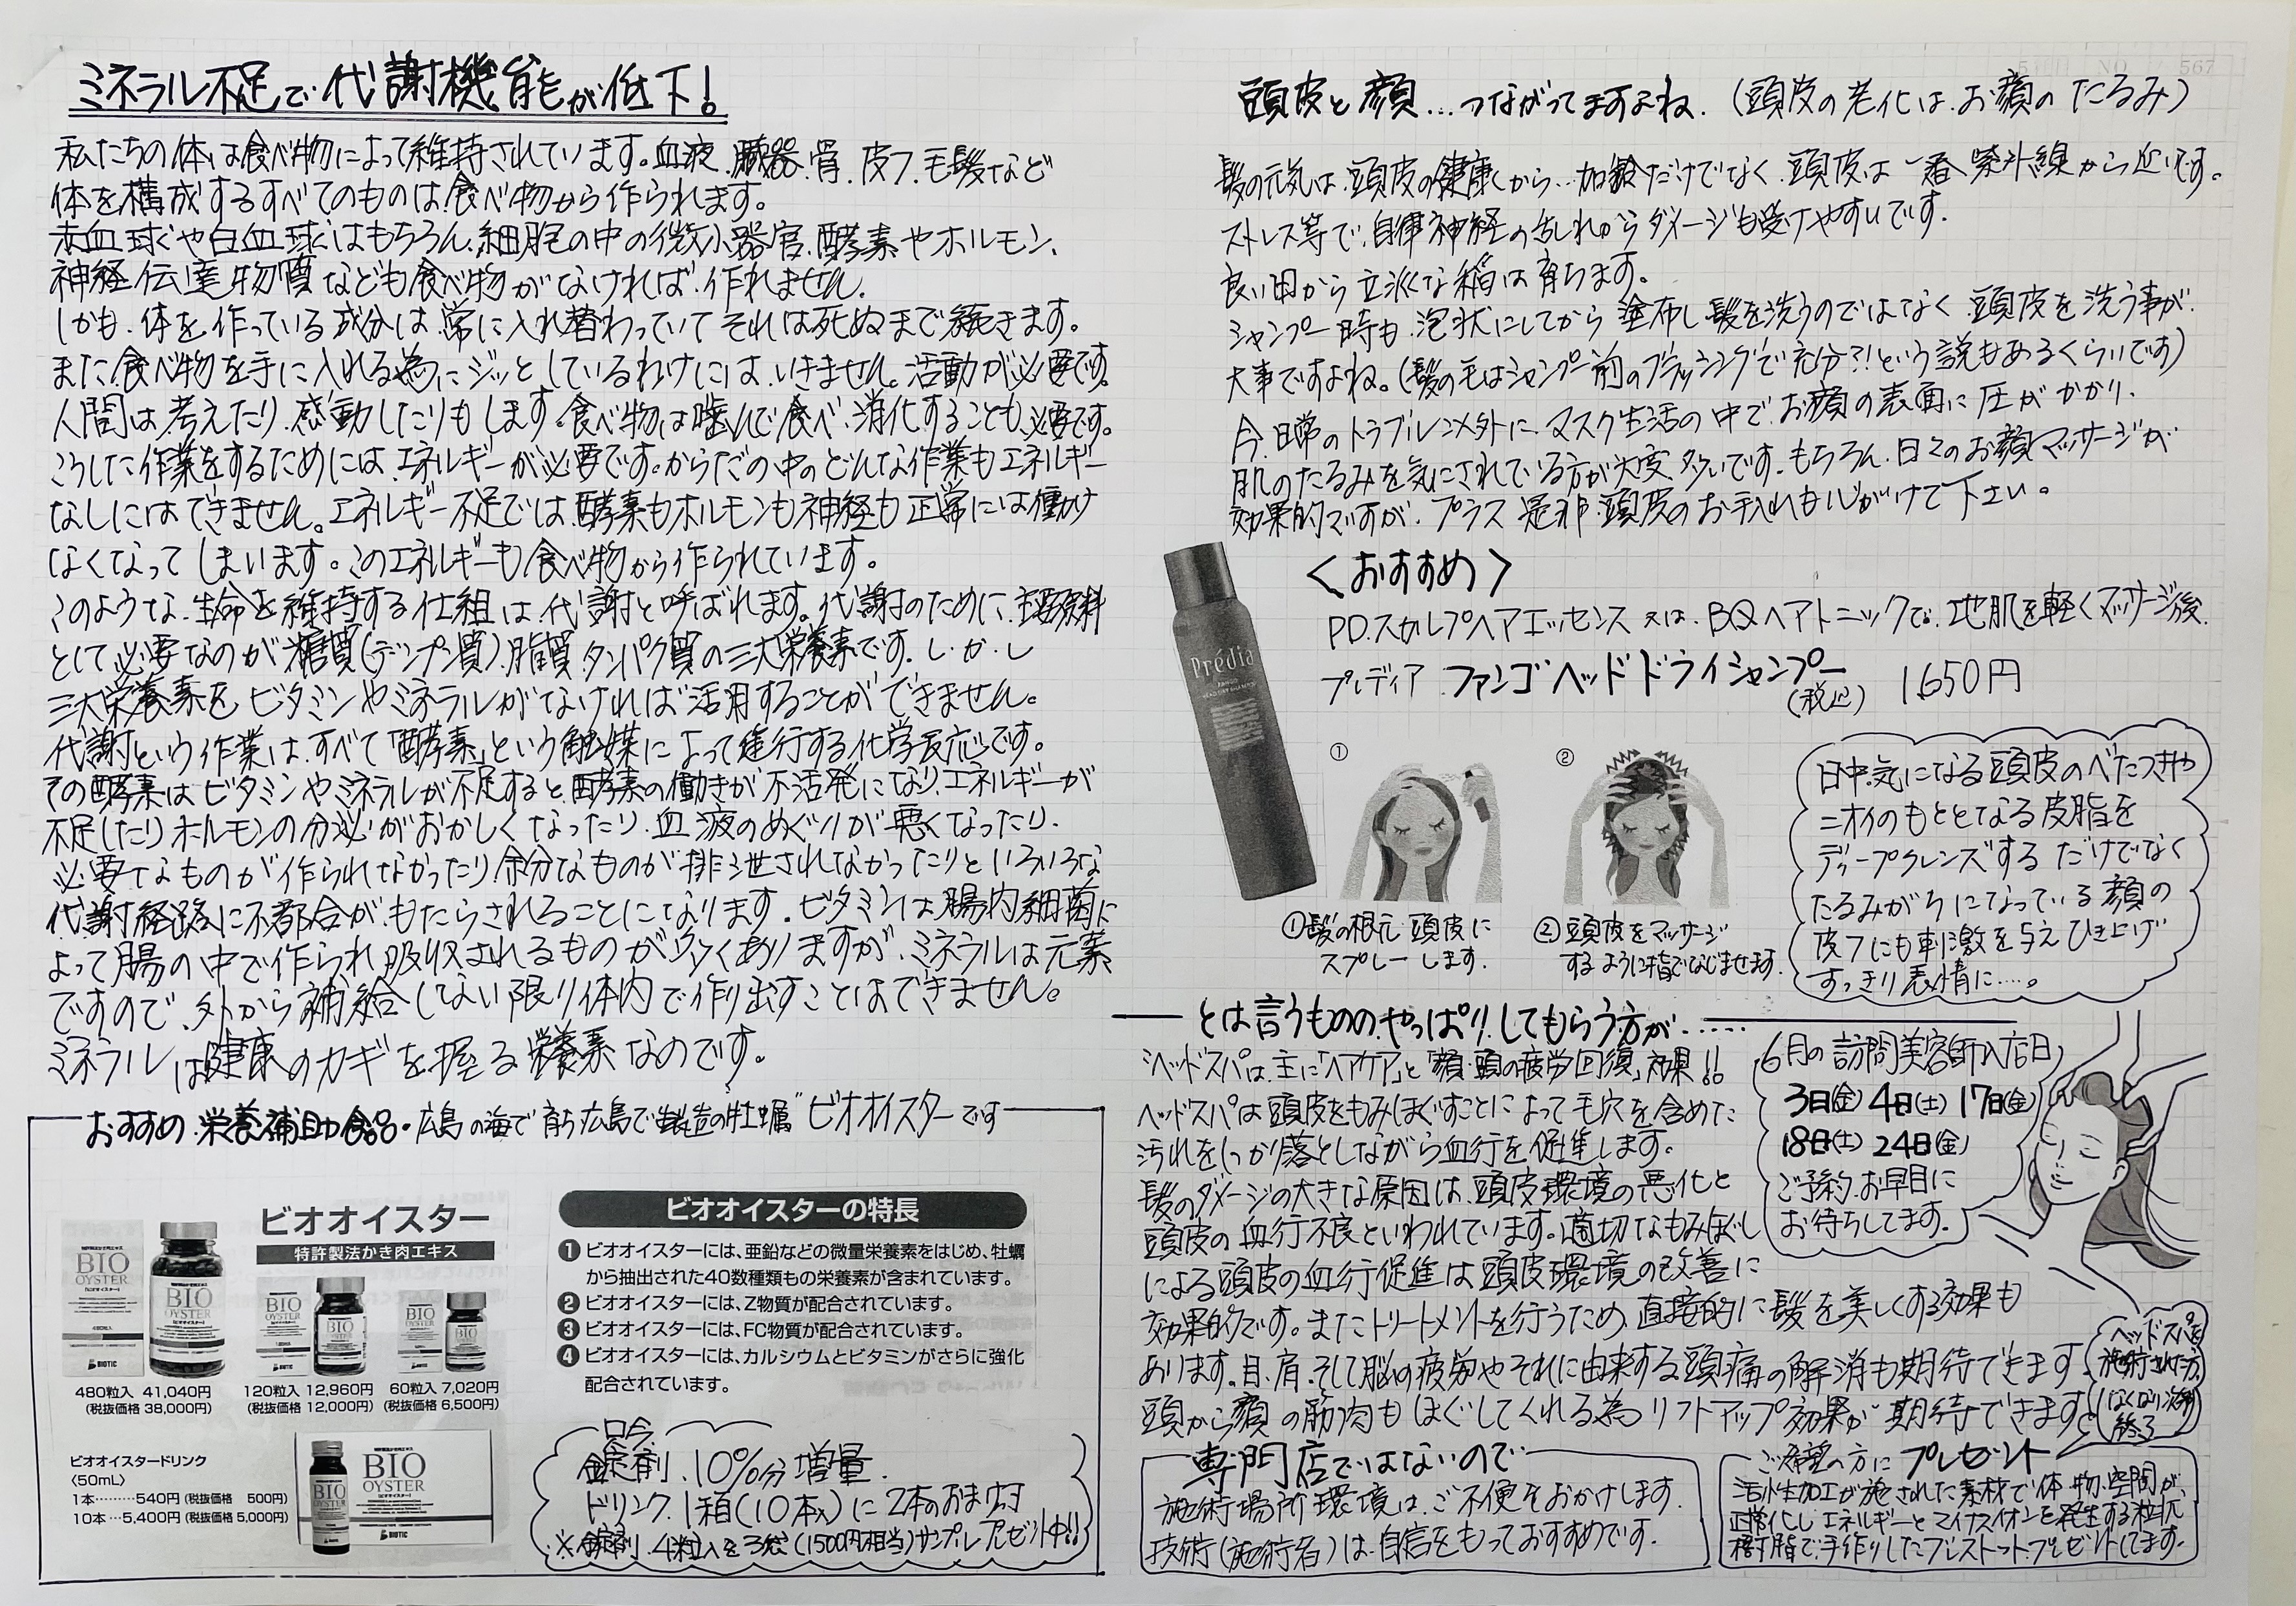 ミネラル不足で代謝機能が低下!
私たちの体は食べ物によって維持されています。血液.臓器.骨.皮フ.毛髪など
体を構成するすべてのものは食べ物から作られます。
赤血球や白血球はもちろん.細胞の中の微小器官.酵素やホルモン、
神経伝達物質なども食べ物がなければ.作れません.
しかも.体を作っている成分は.常に入れ替わっていてそれは死ぬまで続きます。
また食べ物を手に入れる為にジッとしているわけにはいきません。活動が必要です。
人間は考えたり.感動したりもします。食べ物は噛んで食べ.消化することも必要です。
こうした作業をするためにはエネルギーが必要です。からだの中のどんな作業もエネルギー
なしにはできません。エネルギー不足では.酵素もホルモンも神経も正常には働け
なくなってしまいます。このエネルギーも食べ物から作られています。
このような.生命を維持する仕組は.代謝と呼ばれます。代謝のために.主要原料
として必要なのが糖質(デンプン質).脂質.タンパク質の三大栄養素です.しかし
三大栄養素を.ビタミンやミネラルがなければ活用することができません。
代謝という作業は.すべて「酵素」という触媒によって進行する化学反応です。
その酵素はビタミンやミネラルが不足すると.酵素の働きが不活発になり.エネルギーが
不足したりホルモンの分泌がおかしくなったり.血液のめぐりが悪くなったり.
必要なものが作られなかったり.余分なものが排泄されなかったりといろいろな
代謝経路に不都合がもたらされることになります.ビタミンは腸内細菌に
よって腸の中で作られ吸収されるものが多くありますが.ミネラルは元素
ですので、外から補給しない限り体内で作り出すことはできません。
ミネラルは健康のカギを握る栄養素なのです。
おすすめ.栄養補助食品・広島の海で育ち広島で製造の牡蠣"ビオオイスター"です
ビオオイスター
特許製法かき肉エキス
BIO
OYSTER
BIOTIC
480粒入 41,040円
(税抜価格 38,000円)
120粒入 12,960円
(税抜価格 12,000円)
60粒入 7,020円
(税抜価格 6,500円)
ビオオイスタードリンク
〈50mL〉
1本………540円(税抜価格 500円)
10本…5,400円(税抜価格 5,000円)
BIO
OYSTER
BIOTIC
ビオオイスターの特長
❶ ビオオイスターには、亜鉛などの微量栄養素をはじめ、牡蠣
から抽出された40数種類もの栄養素が含まれています。
❷ ビオオイスターには、Z物質が配合されています。
❸ ビオオイスターには、FC物質が配合されています。
❹ ビオオイスターには、カルシウムとビタミンがさらに強化
配合されています。
只今
錠剤.10%分増量.
ドリンク.1箱(10本入)に2本のおまけ
※錠剤.4粒入を3袋(1500円相当)サンプルプレゼント中!!
頭皮と顔…つながってますよね.(頭皮の老化は.お顔のたるみ)
髪の元気は.頭皮の健康から…加齢だけでなく.頭皮は一番紫外線から近いです。
ストレス等で.自律神経の乱れからダメージも受けやすいです.
良い田から立派な稲は育ちます。
シャンプー時も.泡状にしてから塗布し髪を洗うのではなく.頭皮を洗う事が
大事ですよね。(髪の毛はシャンプー前のブラッシングで充分?!という説もあるくらいです)
今.日常のトラブル以外に.マスク生活の中でお顔の表面に圧がかかり.
肌のたるみを気にされている方が大変多いです.もちろん.日々のお顔マッサージが
効果的ですが.プラス是非頭皮のお手入れも心がけて下さい。
<おすすめ>
PD.スカルプヘアエッセンス又は.BQヘアトニックで.地肌を軽くマッサージ後.
プレディア ファンゴヘッドドライシャンプー
(税込) 1,650円
Prédia
①
②
①髪の根元.頭皮に
スプレーします.
②頭皮をマッサージ
するように指でなじませます.
日中.気になる頭皮のべたつきや
ニオイのもととなる皮脂を
ディープクレンズするだけでなく
たるみがちになっている顔の
皮フにも刺激を与えひき上げ
すっきり表情に….。
とは言うものの.やっぱり.してもらう方が......
ヘッドスパは.主に「ヘアケア」と「顔.頭の疲労回復」効果!!
ヘッドスパは頭皮をもみほぐすことによって毛穴を含めた
汚れをしっかり落としながら血行を促進します。
髪のダメージの大きな原因は.頭皮環境の悪化と
頭皮の血行不良といわれています。適切なもみほぐし
による頭皮の血行促進は頭皮環境の改善に
効果的です。またトリートメントを行うため.直接的に髪を美しくする効果も
あります.目.肩.そして脳の疲労やそれに由来する頭痛の解消も期待できます
頭から顔の筋肉もほぐしてくれる為リフトアップ効果が期待できます
6月の訪問美容師入店日
3日(金) 4日(土) 17日(金)
18日(土) 24日(金)
ご予約.お早目に
お待ちしてます.
ヘッドスパを
施術された方.
なくなり次第
終了
専門店ではないので
施術場所.環境は.ご不便をおかけします.
技術(施術者)は.自信をもっておすすめです.
ご希望の方に プレゼント
活性加工が施された素材で体.物.空間が.
正常化しエネルギーとマイナスイオンを発生する
樹脂で.手作りしたブレスレット.プレゼントしてます.